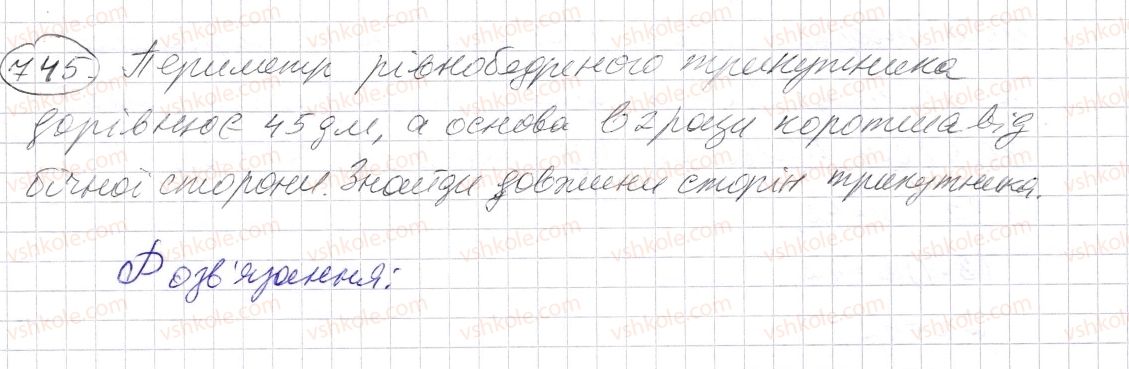 745. Периметр рівнобедреного трикутника
дорівнює 45 дм, а основа в 2 рази коротша від
бічної сторони. Знайди довжини сторін трикутника.
Розв'язання: